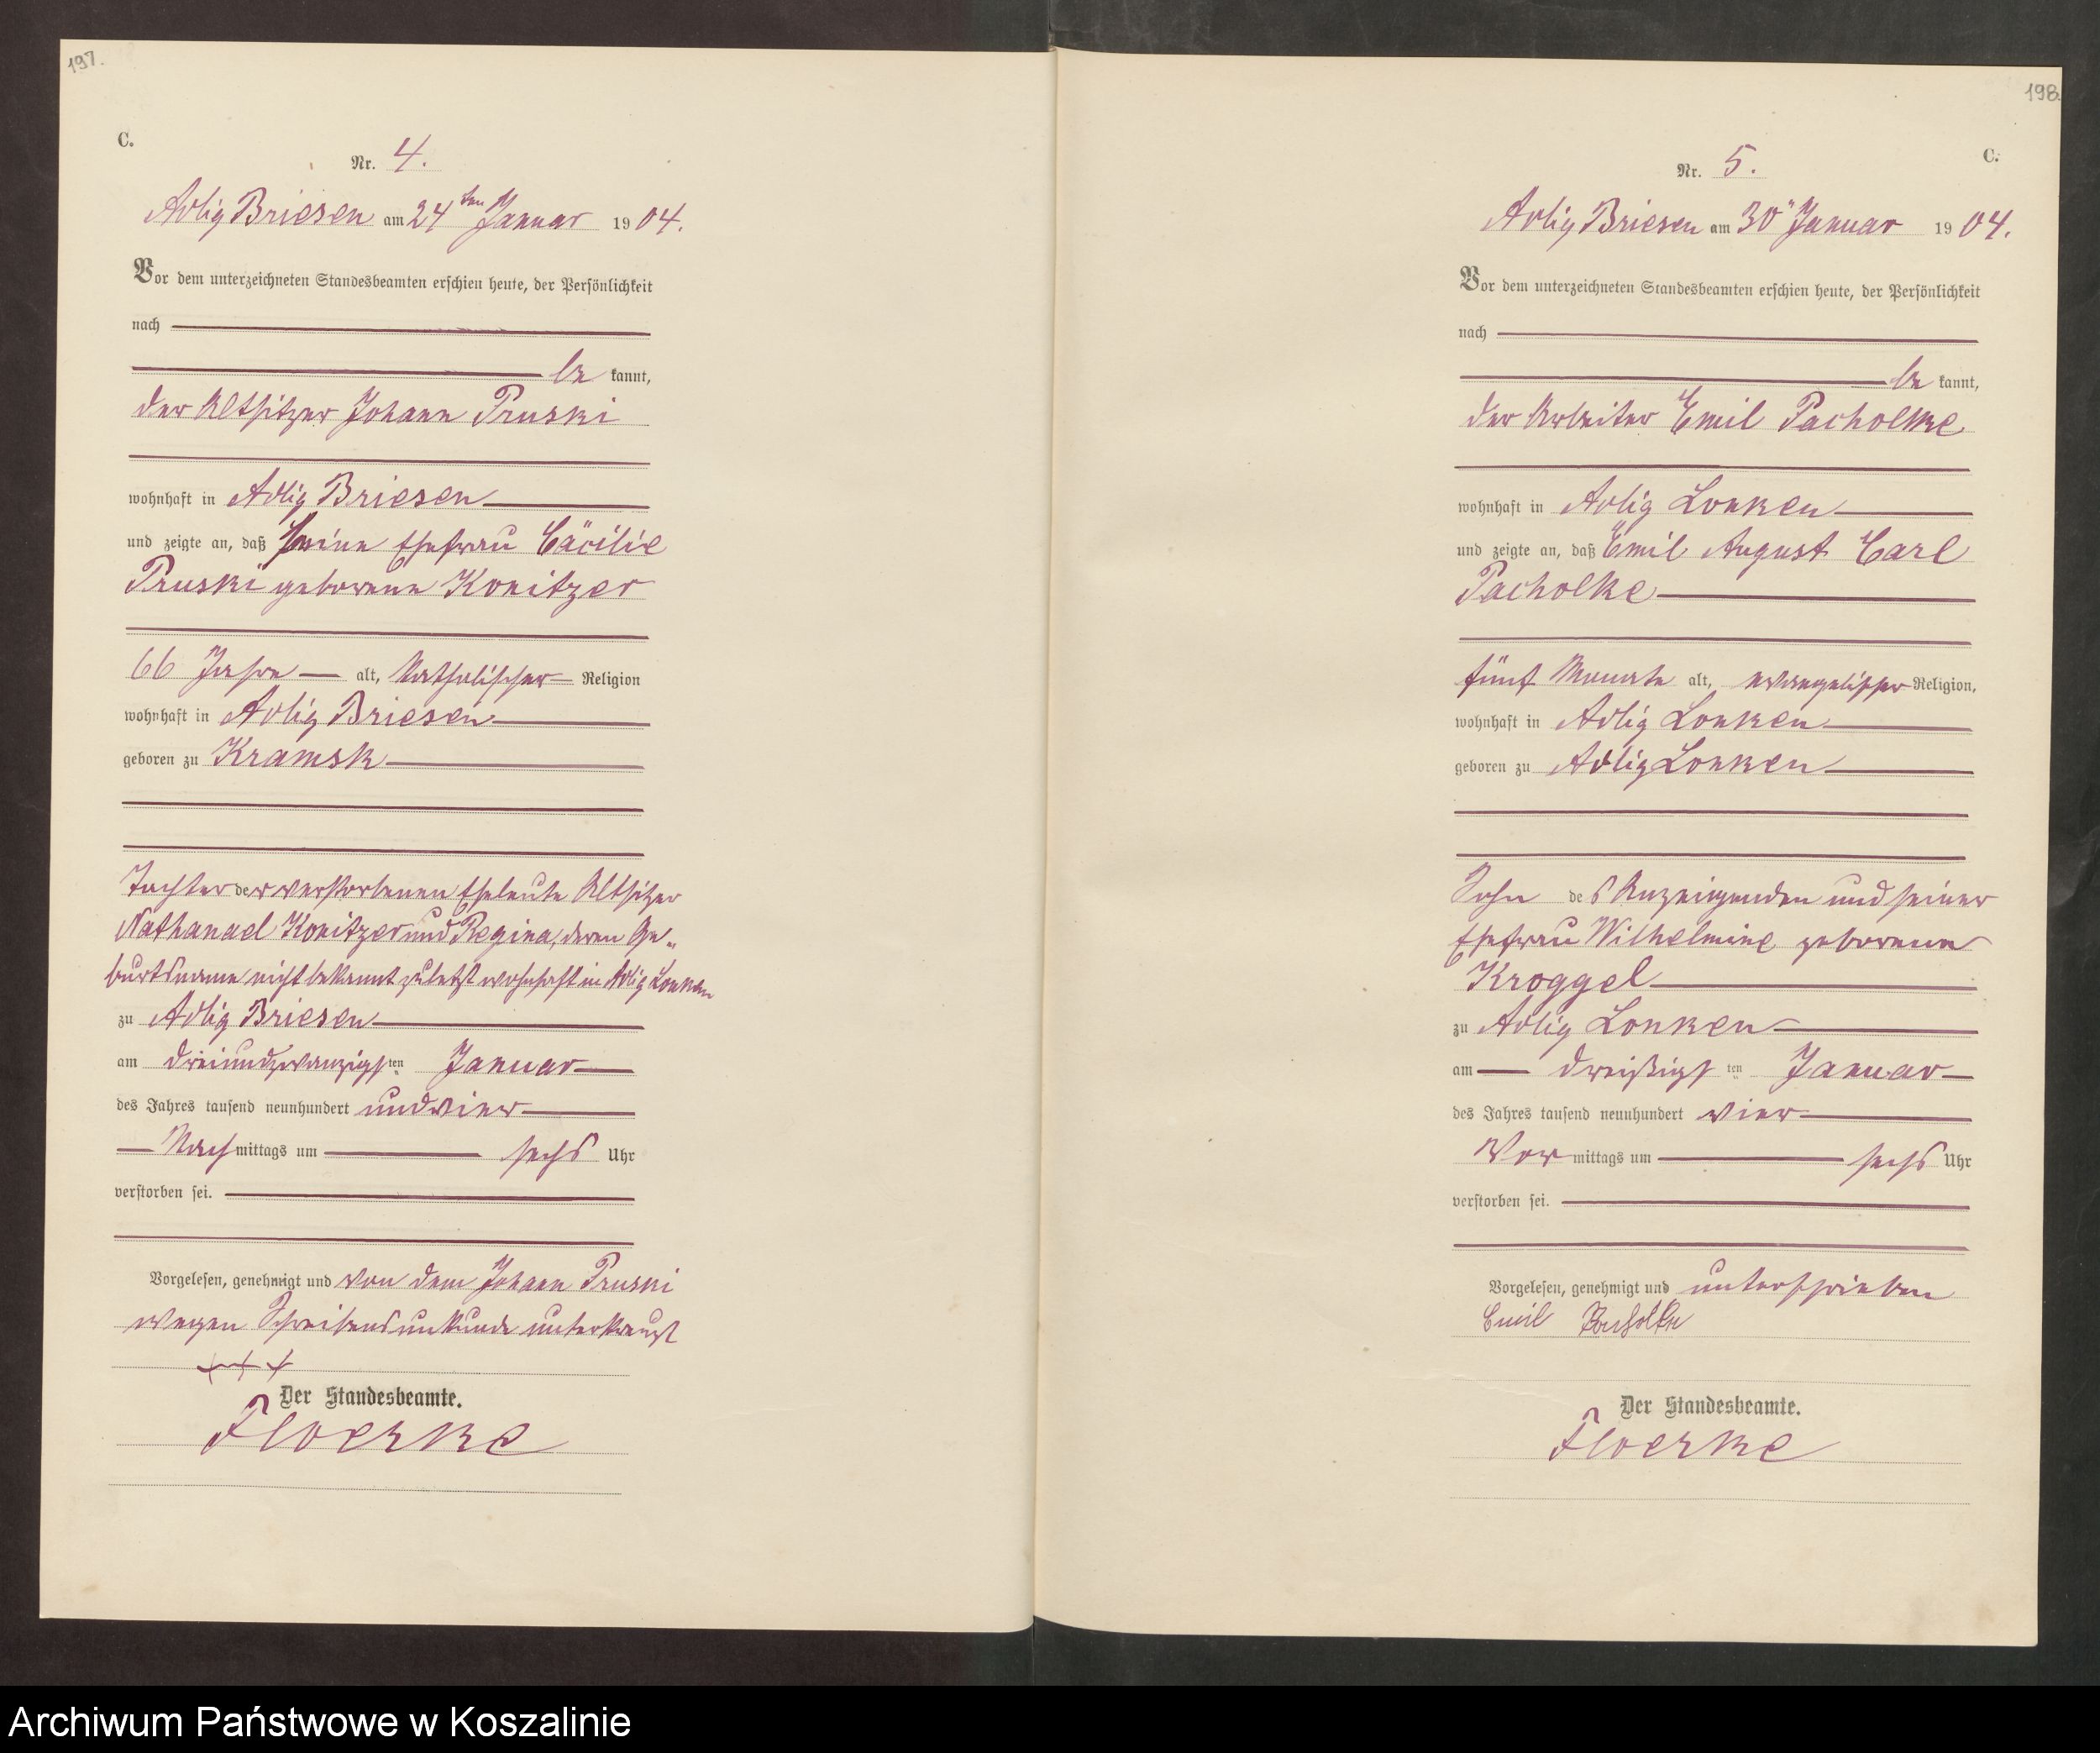 197.
C.
Nr. 4.
Adlig Briesen am 24ten Januar 1904.
Vor dem unterzeichneten Standesbeamten erschien heute, der Persönlichkeit
nach
be kannt,
der Altsitzer Johann Pruski
wohnhaft in Adlig Briesen
und zeigte an, daß seine Ehefrau Cäcilie
Pruski geborene Konitzer
66 Jahre alt, katholischer Religion
wohnhaft in Adlig Briesen
geboren zu Kramsk
Tochter der verstorbenen Eheleute Altsitzer
Nathanael Konitzer und Regina, deren Ge-
burtsname nicht bekannt zuletzt wohnhaft in Adlig Lonken
zu Adlig Briesen
am dreiundzwanzigsten Januar
des Jahres tausend neunhundert und vier
Nachmittags um sechs Uhr
verstorben sei.
Vorgelesen, genehmigt und von dem Johann Pruski
wegen Schreibensunkunde unterkreuzt
+++
Der Standesbeamte.
Floerke
198
C.
Nr. 5.
Adlig Briesen am 30" Januar 1904.
Vor dem unterzeichneten Standesbeamten erschien heute, der Persönlichkeit
nach
be kannt,
der Arbeiter Emil Pacholke
wohnhaft in Adlig Lonken
und zeigte an, daß Emil August Carl
Pacholke
fünf Monate alt, evangelischer Religion,
wohnhaft in Adlig Lonken
geboren zu Adlig Lonken
Sohn des Anzeigenden und seiner
Ehefrau Wilhelmine geborene
Kroggel
zu Adlig Lonken
am dreißigsten Januar
des Jahres tausend neunhundert vier
Vormittags um sechs Uhr
verstorben sei.
Vorgelesen, genehmigt und unterschrieben
Emil Pacholke
Der Standesbeamte.
Floerke
Archiwum Państwowe w Koszalinie